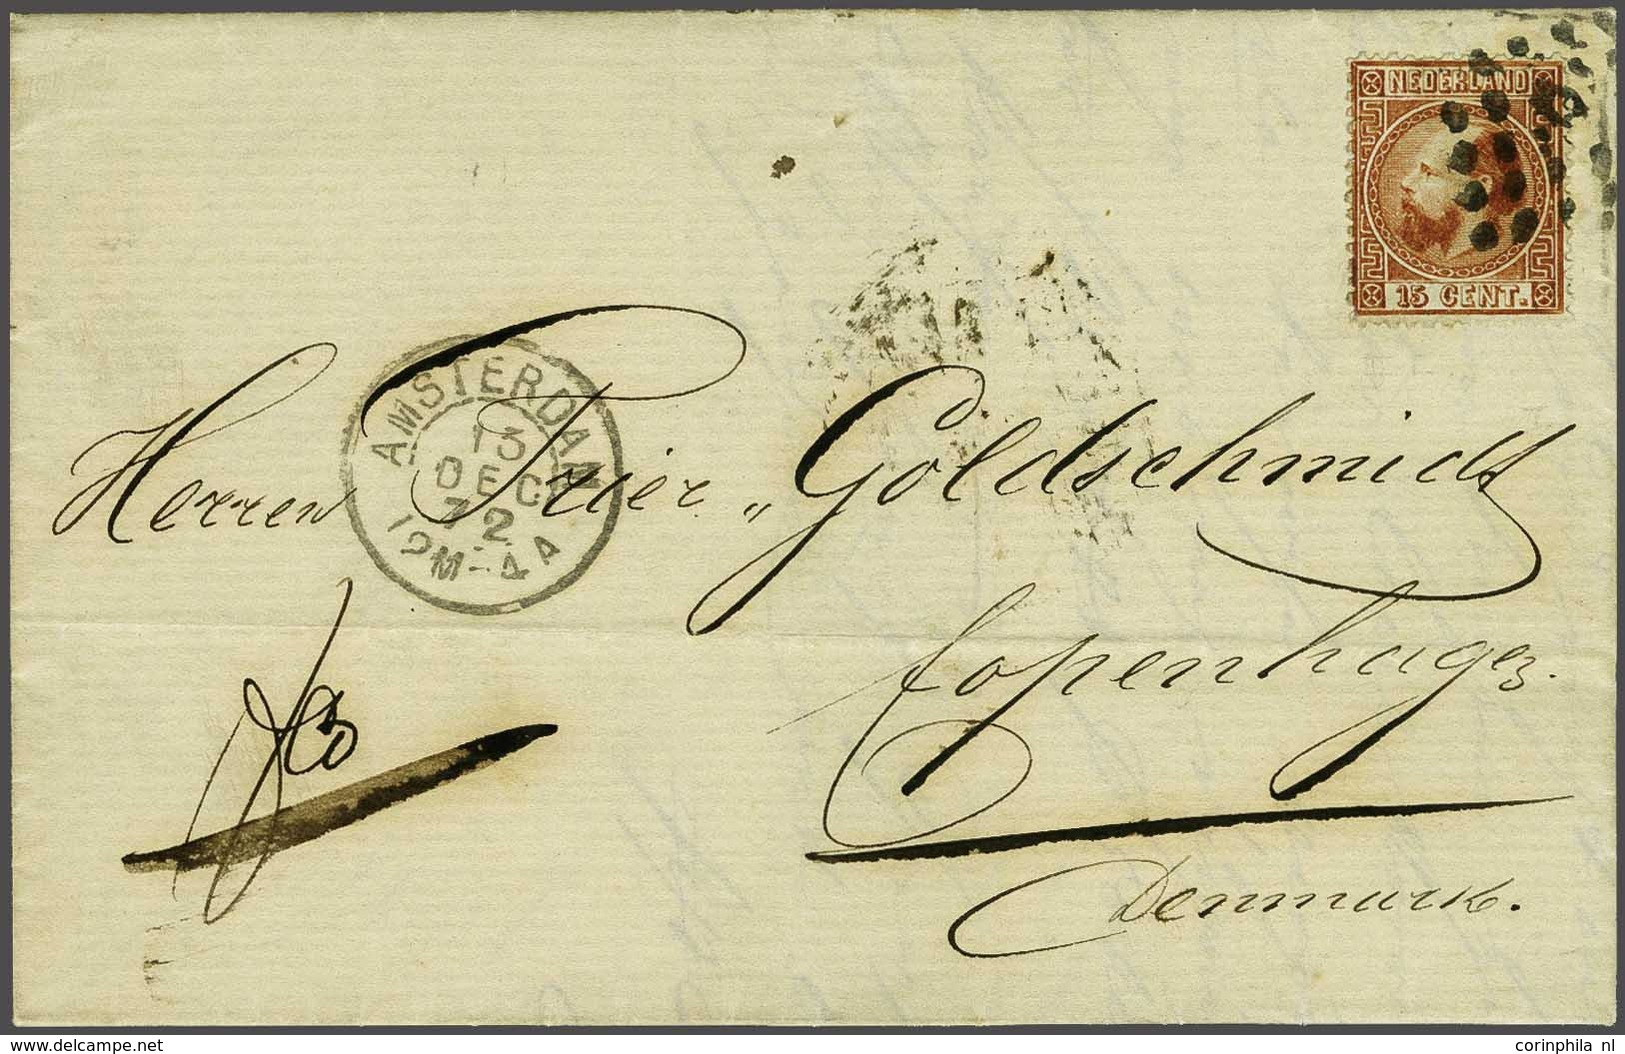 NEDERLAND
15 CENT.
AMSTERDAM
13
DEC
72
12M-4A
Herren Trier „ Goldschmidt
Copenhagen.
Denmark.
delcampe.net
corinphila nl